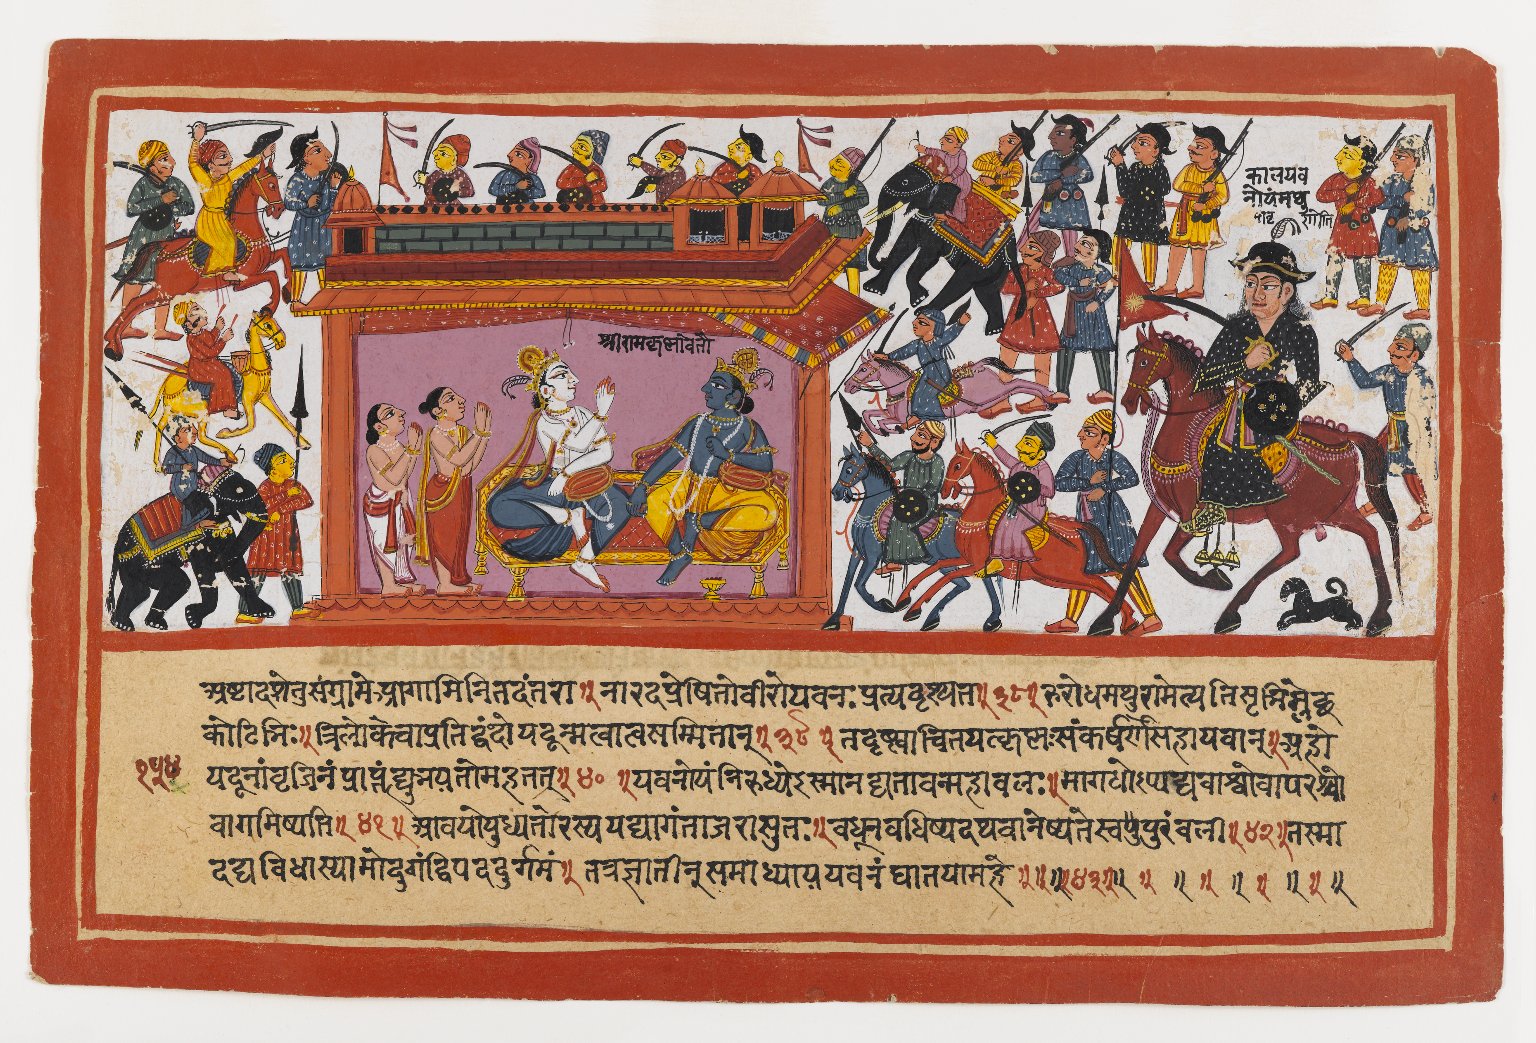 कालयव
नोयंमथु
रांगोति
श्रीरामकृष्णौवतौ
अष्टादशेतुसंग्रामेआगामिनितदंतरा॥नारदप्रेषितोवीरोयवनःप्रत्यदृश्यत॥३८॥रुरोधमथुरामेत्यतिसृभिर्म्लेछ
कोटिभिः॥त्रिलोकेवाप्रतिद्वंदोयदून्मत्वात्मसम्मितान्॥३९॥तदृष्ट्वाचिंतयत्कृष्णःसंकर्षणसहायवान्॥अहो
१५४
यदूनांवृजिनंप्राप्तंह्युभयतोमहत्॥४०॥यवनोयंनिरुध्येऽस्मानद्यतावन्महाबलः॥मागधोऽप्यद्यवाश्वोवापरश्वो
वागमिष्यति॥४१॥आवयोयुध्यतोरस्ययद्यागंताजरासुतः॥बधून्वधिष्यदथवानेष्यतेस्वपुरंबली॥४२॥तस्मा
दद्यविधास्यामोदुर्गंद्विपददुर्गमं॥तत्रज्ञातीन्समाध्याययवनंघातयामहे॥॥॥४३॥॥॥॥॥॥॥॥